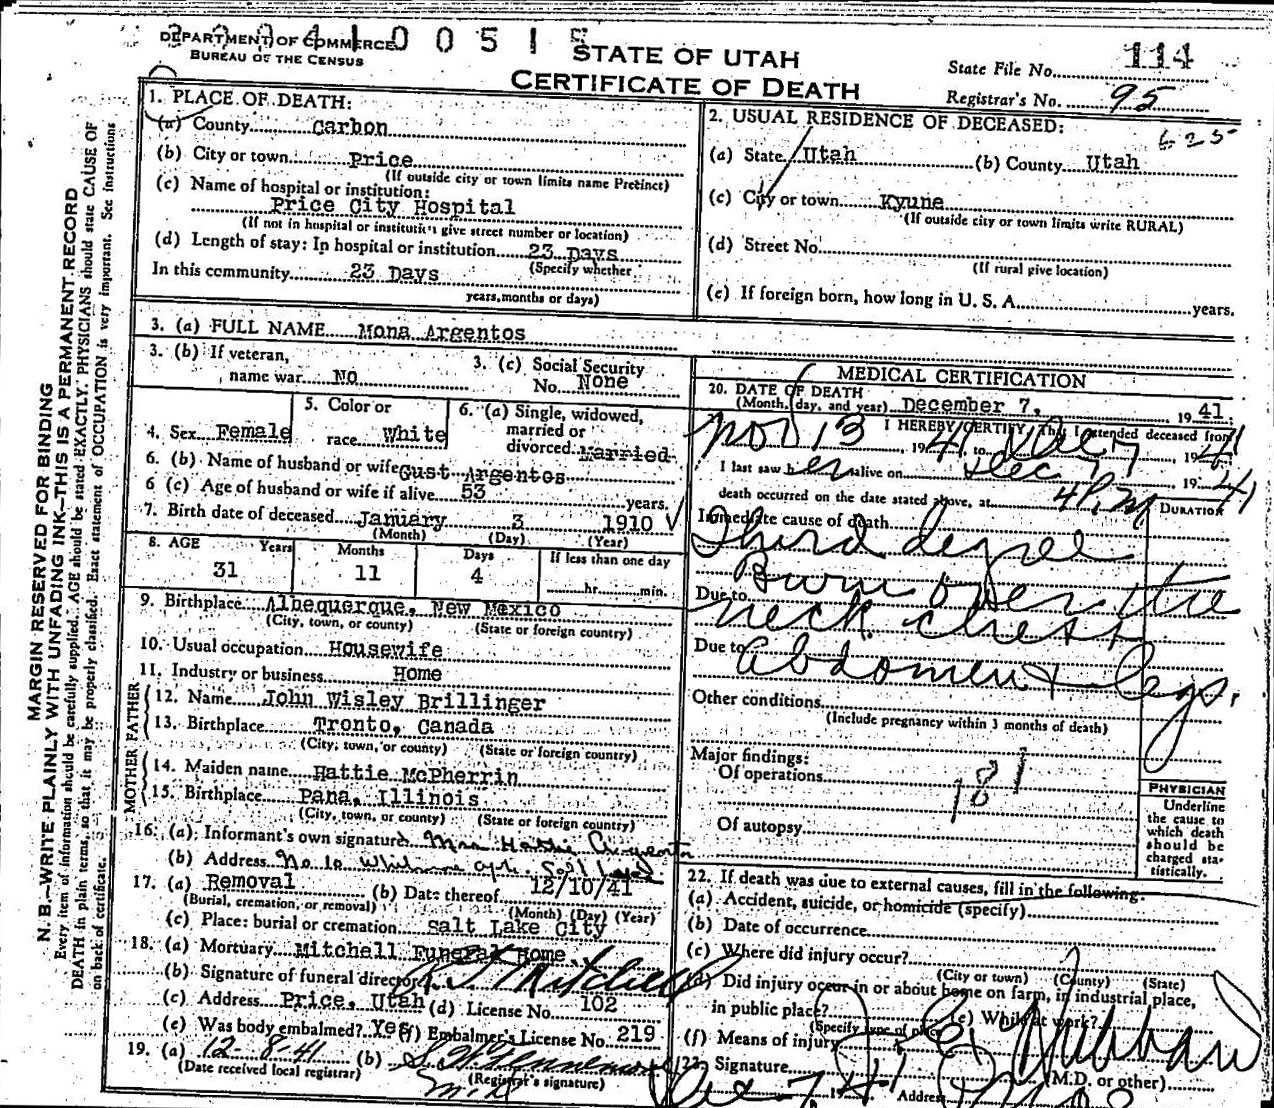 DEPARTMENT OF COMMERCE
BUREAU OF THE CENSUS
STATE OF UTAH
CERTIFICATE OF DEATH
State File No. 114
Registrar's No. 95
MARGIN RESERVED FOR BINDING
N. B.—WRITE PLAINLY WITH UNFADING INK—THIS IS A PERMANENT RECORD
Every item of information should be carefully supplied. AGE should be stated EXACTLY. PHYSICIANS should state CAUSE OF
DEATH in plain terms, so that it may be properly classified. Exact statement of OCCUPATION is very important. See instructions
on back of certificate.
1. PLACE OF DEATH:
(a) County Carbon
(b) City or town Price
(If outside city or town limits name Precinct)
(c) Name of hospital or institution:
Price City Hospital
(If not in hospital or institution give street number or location)
(d) Length of stay: In hospital or institution 23 Days
(Specify whether
In this community 23 Days
years, months or days)
2. USUAL RESIDENCE OF DECEASED:
625
(a) State Utah (b) County Utah
(c) City or town Kyune
(If outside city or town limits write RURAL)
(d) Street No.
(If rural give location)
(e) If foreign born, how long in U. S. A. years.
3. (a) FULL NAME Mona Argentos
3. (b) If veteran,
name war No
3. (c) Social Security
No. None
4. Sex Female
5. Color or
race White
6. (a) Single, widowed,
married or
divorced Married
6. (b) Name of husband or wife Gust Argentos
6 (c) Age of husband or wife if alive 53 years.
7. Birth date of deceased January 3 1910 V
(Month) (Day) (Year)
8. AGE Years Months Days If less than one day
31 11 4 hr. min.
9. Birthplace Albequerque, New Mexico
(City, town, or county) (State or foreign country)
10. Usual occupation Housewife
11. Industry or business Home
FATHER
12. Name John Wisley Brillinger
13. Birthplace Tronto, Canada
(City, town, or county) (State or foreign country)
MOTHER
14. Maiden name Hattie McPherrin
15. Birthplace Pana, Illinois
(City, town, or county) (State or foreign country)
16. (a) Informant's own signature Mrs Hattie
(b) Address No 10
17. (a) Removal (b) Date thereof 12/10/41
(Burial, cremation, or removal) (Month) (Day) (Year)
(c) Place: burial or cremation Salt Lake City
18. (a) Mortuary Mitchell Funeral Home
(b) Signature of funeral director Mitchell
(c) Address Price, Utah (d) License No. 102
(e) Was body embalmed? Yes (f) Embalmer's License No. 219
19. (a) 12-8-41 (b)
(Date received local registrar) (Registrar's signature)
MEDICAL CERTIFICATION
20. DATE OF DEATH
(Month, day, and year) December 7, 1941
I HEREBY CERTIFY, That I attended deceased from
Nov 13, 1941 to Dec 7, 1941
I last saw her alive on Dec 7 1941
death occurred on the date stated above, at 4 P.M
DURATION
Immediate cause of death
Third degree
Burn over the
Due to
neck chest
Due to Abdomen + legs.
Other conditions
(Include pregnancy within 3 months of death)
Major findings:
Of operations
181
Of autopsy
PHYSICIAN
Underline
the cause to
which death
should be
charged sta-
tistically.
22. If death was due to external causes, fill in the following:
(a) Accident, suicide, or homicide (specify)
(b) Date of occurrence
(c) Where did injury occur?
(City or town) (County) (State)
(d) Did injury occur in or about home on farm, in industrial place,
in public place? (e) While at work?
(Specify type of place)
(f) Means of injury
23. Signature Hubbard
(M.D. or other)
Dec 7 1941 Address